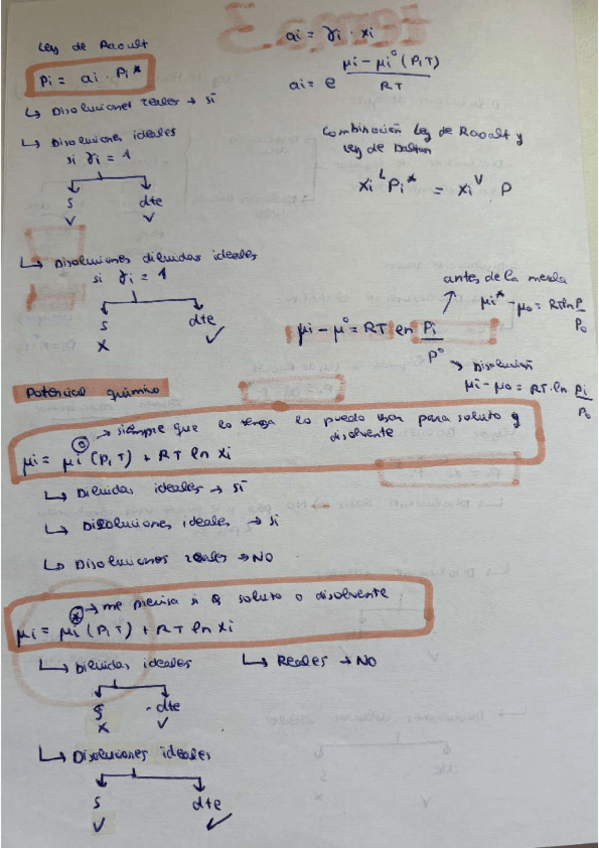 Ley de Raoult
Pi = ai · Pi*
↳ Disoluciones reales → sí
↳ Disoluciones ideales
si γi = 1
s dte
✓ ✓
↳ Disoluciones diluidas ideales
si γi = 1
s dte
x ✓
ai = γi · xi
ai = e^((μi − μi°(P,T))/RT)
Combinación Ley de Raoult y
Ley de Dalton
xi^L Pi* = xi^V P
antes de la mezcla
μi* − μo = RTln P/Po
μi − μ° = RT ln Pi/P°
↘ Disolución
μi − μo = RT·ln Pi/Po
Potencial químico
→ siempre que lo tenga lo puedo usar para soluto y
disolvente
μi = μi°(P,T) + RT ln xi
↳ Diluidas ideales → sí
↳ Disoluciones ideales → sí
↳ Disoluciones reales → NO
→ me precisa si es soluto o disolvente
μi = μi*(P,T) + RT ln xi
↳ Diluidas ideales ↳ Reales → NO
s dte
x ✓
↳ Disoluciones ideales
s dte
✓ ✓